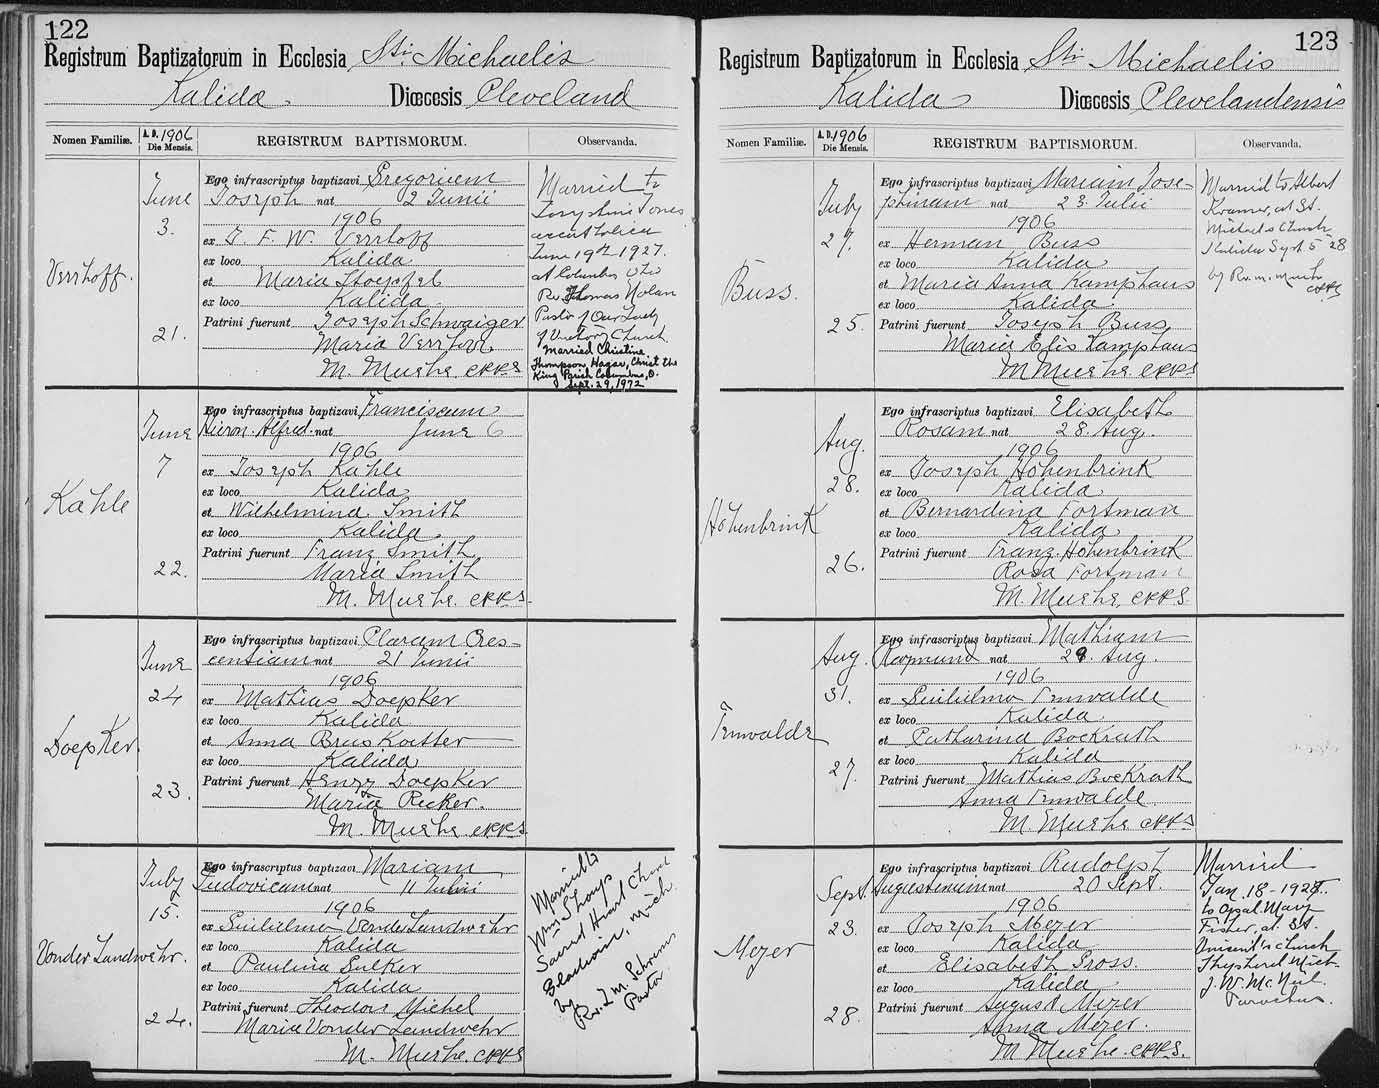 122
Registrum Baptizatorum in Ecclesia Sti Michaelis
Kalida Diœcesis Cleveland
Nomen Familiæ.
A. D. 1906
Die Mensis.
REGISTRUM BAPTISMORUM.
Observanda.
Verrhoff.
June
3.
21.
Ego infrascriptus baptizavi Gregorium
Joseph nat 2 Junii
1906
ex J. F. W. Verrhoff
ex loco Kalida
et Maria Stoepfel
ex loco Kalida
Patrini fuerunt Joseph Schwaiger
Maria Verrhoff
M. Mushe. CPPS
Married to
Josephine Jones
acatholica
June 19th 1927.
at Columbus Ohio
Rv. Thomas Nolan
Pastor of Our Lady
of Victory Church.
Married Christine
Thompson Hagar, Christ the
King Parish Columbus, O.
Sept. 29, 1972
Kahle
June
7
22.
Ego infrascriptus baptizavi Franciscum
Hieron. Alfred. nat June 6
1906
ex Joseph Kahle
ex loco Kalida
et Wilhelmina Smith
ex loco Kalida
Patrini fuerunt Franz Smith
Maria Smith
M. Mushe. CPPS.
Doepker.
June
24
23.
Ego infrascriptus baptizavi Claram Cres-
centiam nat 21 Junii
1906
ex Mathias Doepker
ex loco Kalida
et Anna Brus Koetter
ex loco Kalida
Patrini fuerunt Henry Doepker
Maria Recker.
M. Mushe. CPPS
Vonder Landwehr.
July
15.
24.
Ego infrascriptus baptizavi Mariam
Ludovicam nat 11 Julii
1906
ex Guilielmo Vonder Landwehr
ex loco Kalida
et Paulina Sulker
ex loco Kalida
Patrini fuerunt Theodor Michel
Maria Vonder Landwehr
M. Mushe. CPPS
Married to
Wm Shoup
Sacred Heart Church
Mich.
by
Rv. L. M. Schrems
Pastor
123
Registrum Baptizatorum in Ecclesia Sti Michaelis
Kalida Diœcesis Clevelandensis
Nomen Familiæ.
A. D. 1906
Die Mensis.
REGISTRUM BAPTISMORUM.
Observanda.
Buss.
July
27.
25.
Ego infrascriptus baptizavi Mariam Jose-
phinam nat 23. Julii
1906
ex Herman Buss
ex loco Kalida
et Maria Anna Kamphaus
ex loco Kalida
Patrini fuerunt Joseph Buss
Maria Elis Kamphaus
M Mushe CPPS
Married to Albert
Kramer, at St.
Michaels Church
Kalida Sept. 5 28
by Rv. M. Mushe
CPPS
Hohenbrink
Aug.
28.
26.
Ego infrascriptus baptizavi Elisabeth
Rosam nat 28. Aug.
1906
ex Joseph Hohenbrink
ex loco Kalida
et Bernardina Fortman
ex loco Kalida
Patrini fuerunt Franz Hohenbrink
Rosa Fortman
M. Mushe, CPPS.
Trnwalde
Aug.
31.
27.
Ego infrascriptus baptizavi Mathiam
Raymund nat 29. Aug.
1906
ex Guilielmo Trnwalde
ex loco Kalida
et Catharina Bockrath
ex loco Kalida
Patrini fuerunt Mathias Bockrath
Anna Trnwalde
M. Mushe CPPS
Meyer
Sept.
23.
28.
Ego infrascriptus baptizavi Rudolph
Augustinum nat 20 Sept.
1906
ex Joseph Meyer
ex loco Kalida
et Elisabeth Gross.
ex loco Kalida
Patrini fuerunt August Meyer
Anna Meyer.
M Mushe. CPPS.
Married
Jan. 18-1928.
to Opal Mary
Fisher, at St.
Vincent's Church
Shepherd Mich.
J. W. McNeil.